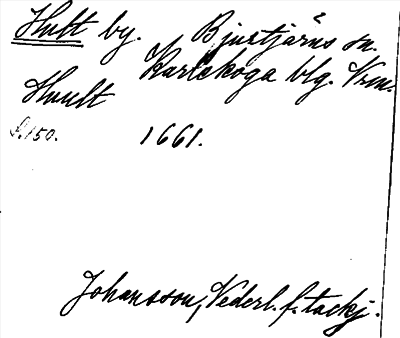 Hult by. Bjurtjärns sn.
Karlskoga blg. Vrm.
Huult
S. 150. 1661.
Johansson, Vederl. f. tackj.